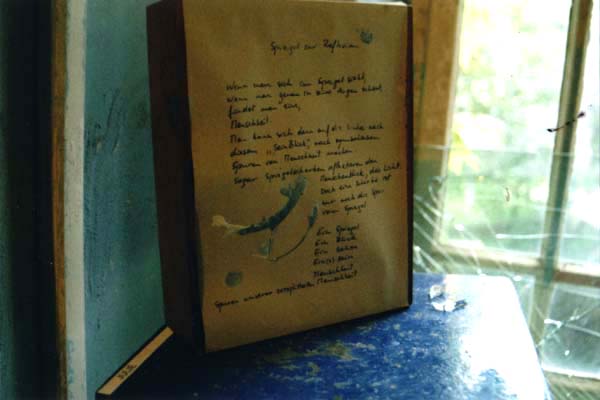 Spiegel zur Reflexion
Wenn man sich im Spiegel sieht,
Wenn man genau in seine Augen schaut,
findet man eine,
Menschheit.
Man kann sich dann auf die Suche nach
diesem nach symbolischen
Spuren von Menschheit machen
Sogar Spiegelscherben reflektieren den
Menschenblick, das Licht.
Doch eine Scherbe ist
nur noch die Spur
vom Spiegel
Ein Spiegel
Ein Blick
Ein Sehen
Ein(s) Sein
Menschheit
Spuren unserer zersplitterten Menschheit